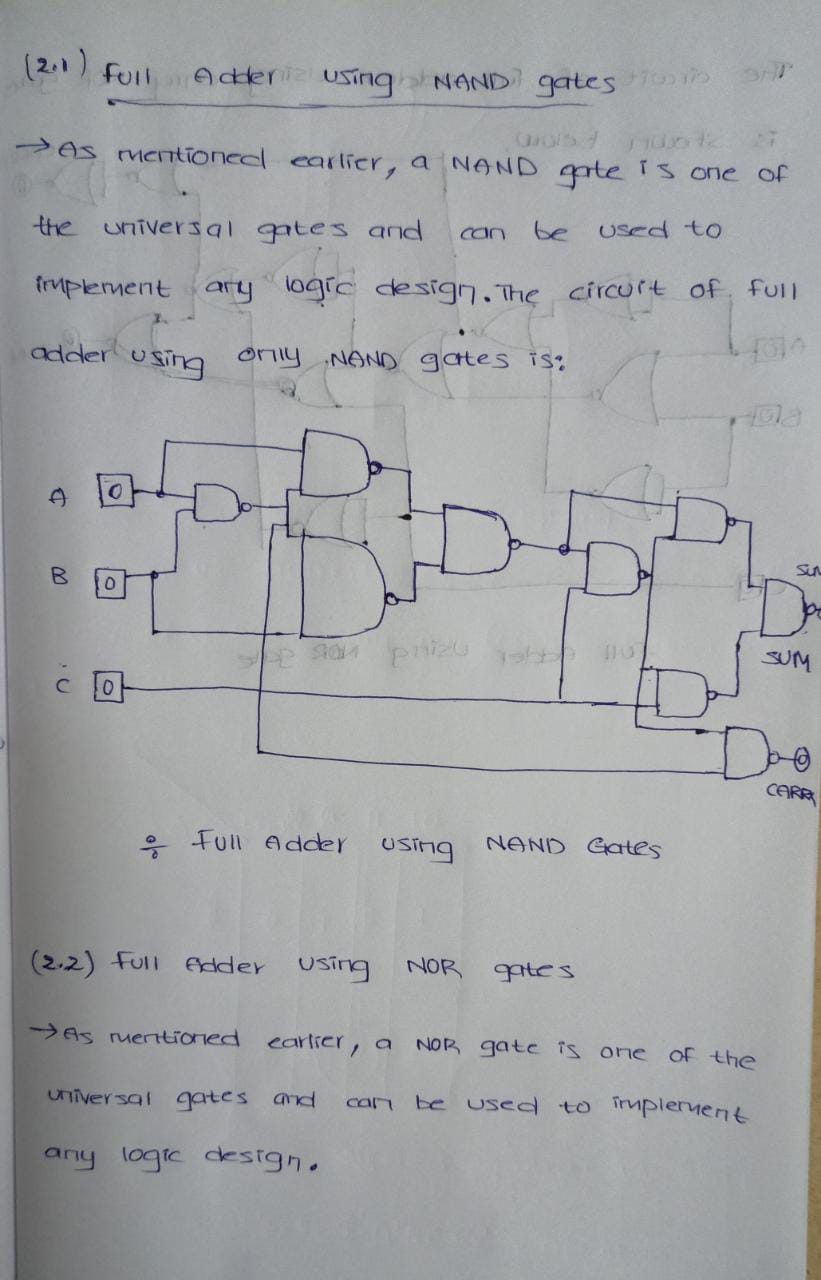 (2.1) Full Adder using NAND gates
→ As mentioned earlier, a NAND gate is one of
the universal gates and can be used to
implement any logic design. The circuit of full
adder using only NAND gates is:
A 0
B 0
C 0
SUM
CARRY
÷ Full Adder using NAND Gates
(2.2) Full Adder using NOR gates
→ As mentioned earlier, a NOR gate is one of the
universal gates and can be used to implement
any logic design.